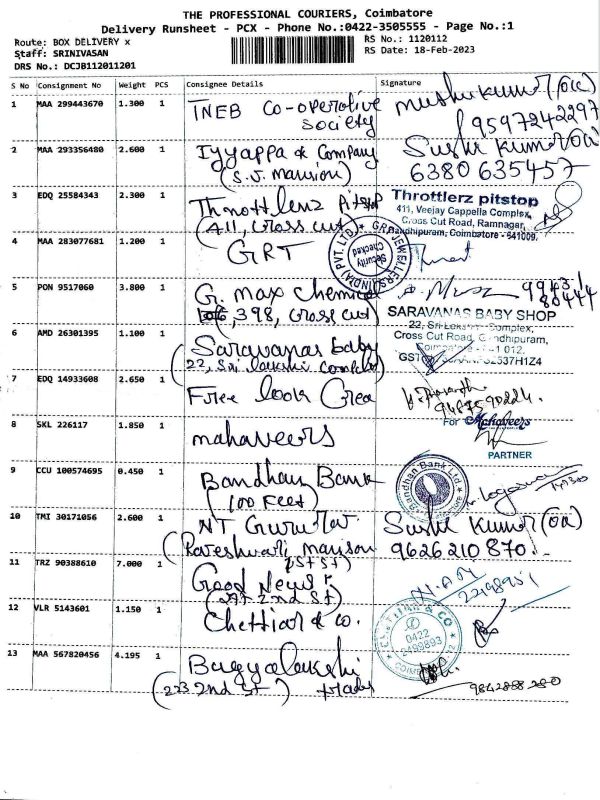 THE PROFESSIONAL COURIERS, Coimbatore
Delivery Runsheet - PCX - Phone No.:0422-3505555 - Page No.:1
Route: BOX DELIVERY x
RS No.: 1120112
Staff: SRINIVASAN
RS Date: 18-Feb-2023
DRS No.: DCJB112011201
S No Consignment No Weight PCS Consignee Details Signature
1 MAA 299443670 1.300 1 TNEB Co-operative
Society
9597242297
2 MAA 293356480 2.600 1 Iyyappa & Company
(S.J. mansion)
Sushi Kumar
6380635457
3 EDQ 25584343 2.300 1 Throttlenz Pitstop
(411, cross cut)
Throttlerz pitstop
411, Veejay Cappella Complex,
Cross Cut Road, Ramnagar,
Gandhipuram, Coimbatore - 641009.
4 MAA 283077681 1.200 1 GRT
GRT JEWELLERS (INDIA) PVT. LTD.
Security
Checked
5 PON 9517060 3.800 1 G. max Chemical
398, Cross cut)
6 AMD 26301395 1.100 1 Saravanas baby
(22, Sri lakshi complex)
SARAVANAS BABY SHOP
22, Sri Complex,
Cross Cut Road, Gandhipuram,
7 EDQ 14933608 2.650 1 Free look Crea
9487590224
8 SKL 226117 1.850 1 mahaveers
For Mahaveers
PARTNER
9 CCU 100574695 0.450 1 Bandhan Bank
(100 Feet)
Bandhan Bank Ltd
10 TMI 30171056 2.600 1 NT Gurudev
mansion
Sushi Kumar
9626210870
11 TRZ 90388610 7.000 1 Good News
(297 2nd St)
12 VLR 5143601 1.150 1 Chettiar & co.
0422
2499893
13 MAA 567820456 4.195 1 Bagyalakshi
(223 2nd St) trades
9842888280